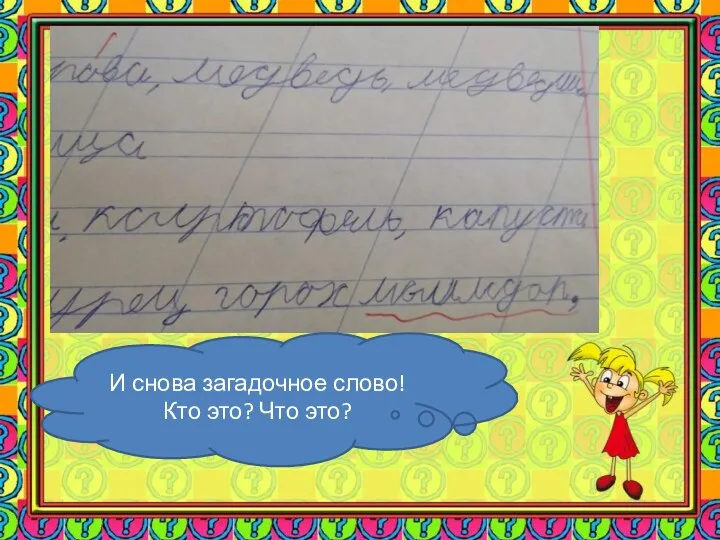 рова, медведь, медведи
ица
, картофель, капуста
урец горох мышмдоп,
И снова загадочное слово!
Кто это? Что это?